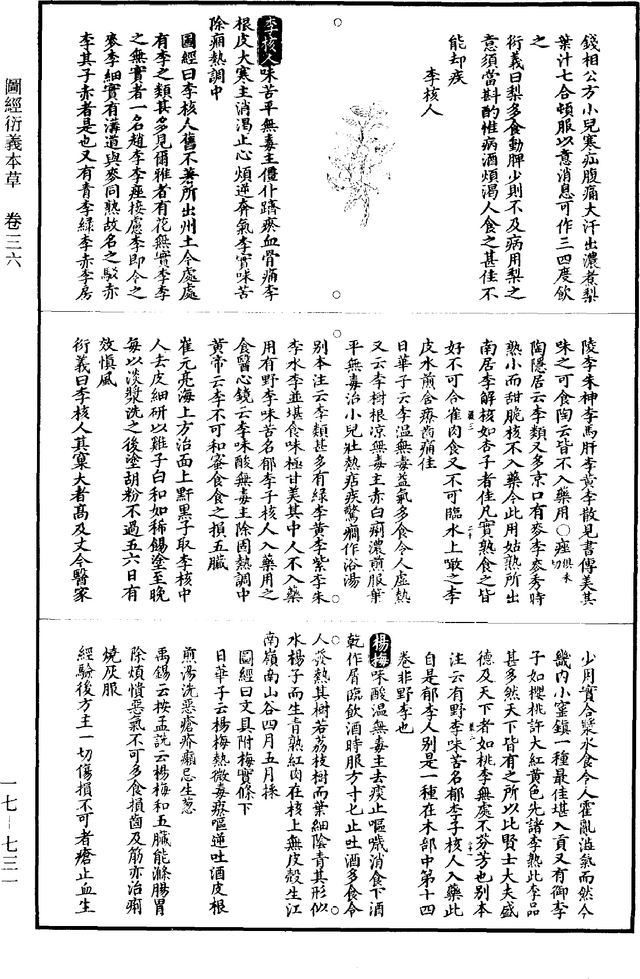 圖經衍義本草　卷三六
錢相公方小兒寒疝腹痛大汗出濃煮梨
葉汁七合頓服以意消息可作三四度飲
之
衍義曰梨多食動脾少則不及病用梨之
意須當斟酌惟病酒煩渴人食之甚佳不
能却疾
李核人
李核人味苦平無毒主僵仆躋瘀血骨痛李
根皮大寒主消渴止心煩逆奔氣李實味苦
除痼熱調中
圖經曰李核人舊不著所出州土今處處
有李之類甚多見爾雅者有花無實李李
之無實者一名趙李李痤接慮李即今之
麥李細實有溝道與麥同熟故名之駁赤
李其子赤者是也又有青李綠李赤李房
陵李朱神李馬肝李黃李散見書傳美其
味之可食陶云皆不入藥用○痤俱未切
陶隱居云李類又多京口有麥李麥秀時
熟小而甜脆核不入藥今此用姑熟所出
南居李解核如杏子者佳凡實熟食之皆
好不可合雀肉食又不可臨水上噉之李
皮水煎含療齒痛佳
日華子云李溫無毒益氣多食令人虛熱
又云李樹根涼無毒主赤白痢濃煎服葉
平無毒治小兒壯熱痞疾驚癇作浴湯
別本注云李類甚多有綠李黃李紫李朱
李水李並堪食味極甘美其中人不入藥
用有野李味苦名郁李子核人入藥用之
食醫心鏡云李味酸無毒主除固熱調中
黃帝云李不可和蜜食食之損五臟
崔元亮海上方治面上䵟黑子取李核中
人去皮細研以雞子白和如稀餳塗至晚
每以淡漿洗之後塗胡粉不過五六日有
效慎風
衍義曰李核人其窠大者高及丈今醫家
少用實合漿水食令人霍亂澁氣而然今
畿內小窰鎮一種最佳堪入貢又有御李
子如櫻桃許大紅黃色先諸李熟此李品
甚多然天下皆有之所以比賢士大夫盛
德及天下者如桃李無處不芬芳也別本
注云有野李味苦名郁李子核人入藥此
自是郁李人別是一種在木部中第十四
卷非野李也
楊梅味酸溫無毒主去痰止嘔噦消食下酒
乾作屑臨飲酒時服方寸匕止吐酒多食令
人發熱其樹若荔枝樹而葉細陰青其形似
水楊子而生青熟紅肉在核上無皮殼生江
南嶺南山谷四月五月採
圖經曰文具附梅實條下
日華子云楊梅熱微毒療嘔逆吐酒皮根
煎湯洗惡瘡疥癩忌生葱
禹錫云按孟詵云楊梅和五臟能滌腸胃
除煩憒惡氣不可多食損齒及筋亦治痢
燒灰服
經驗後方主一切傷損不可者瘡止血生
一七－七三一